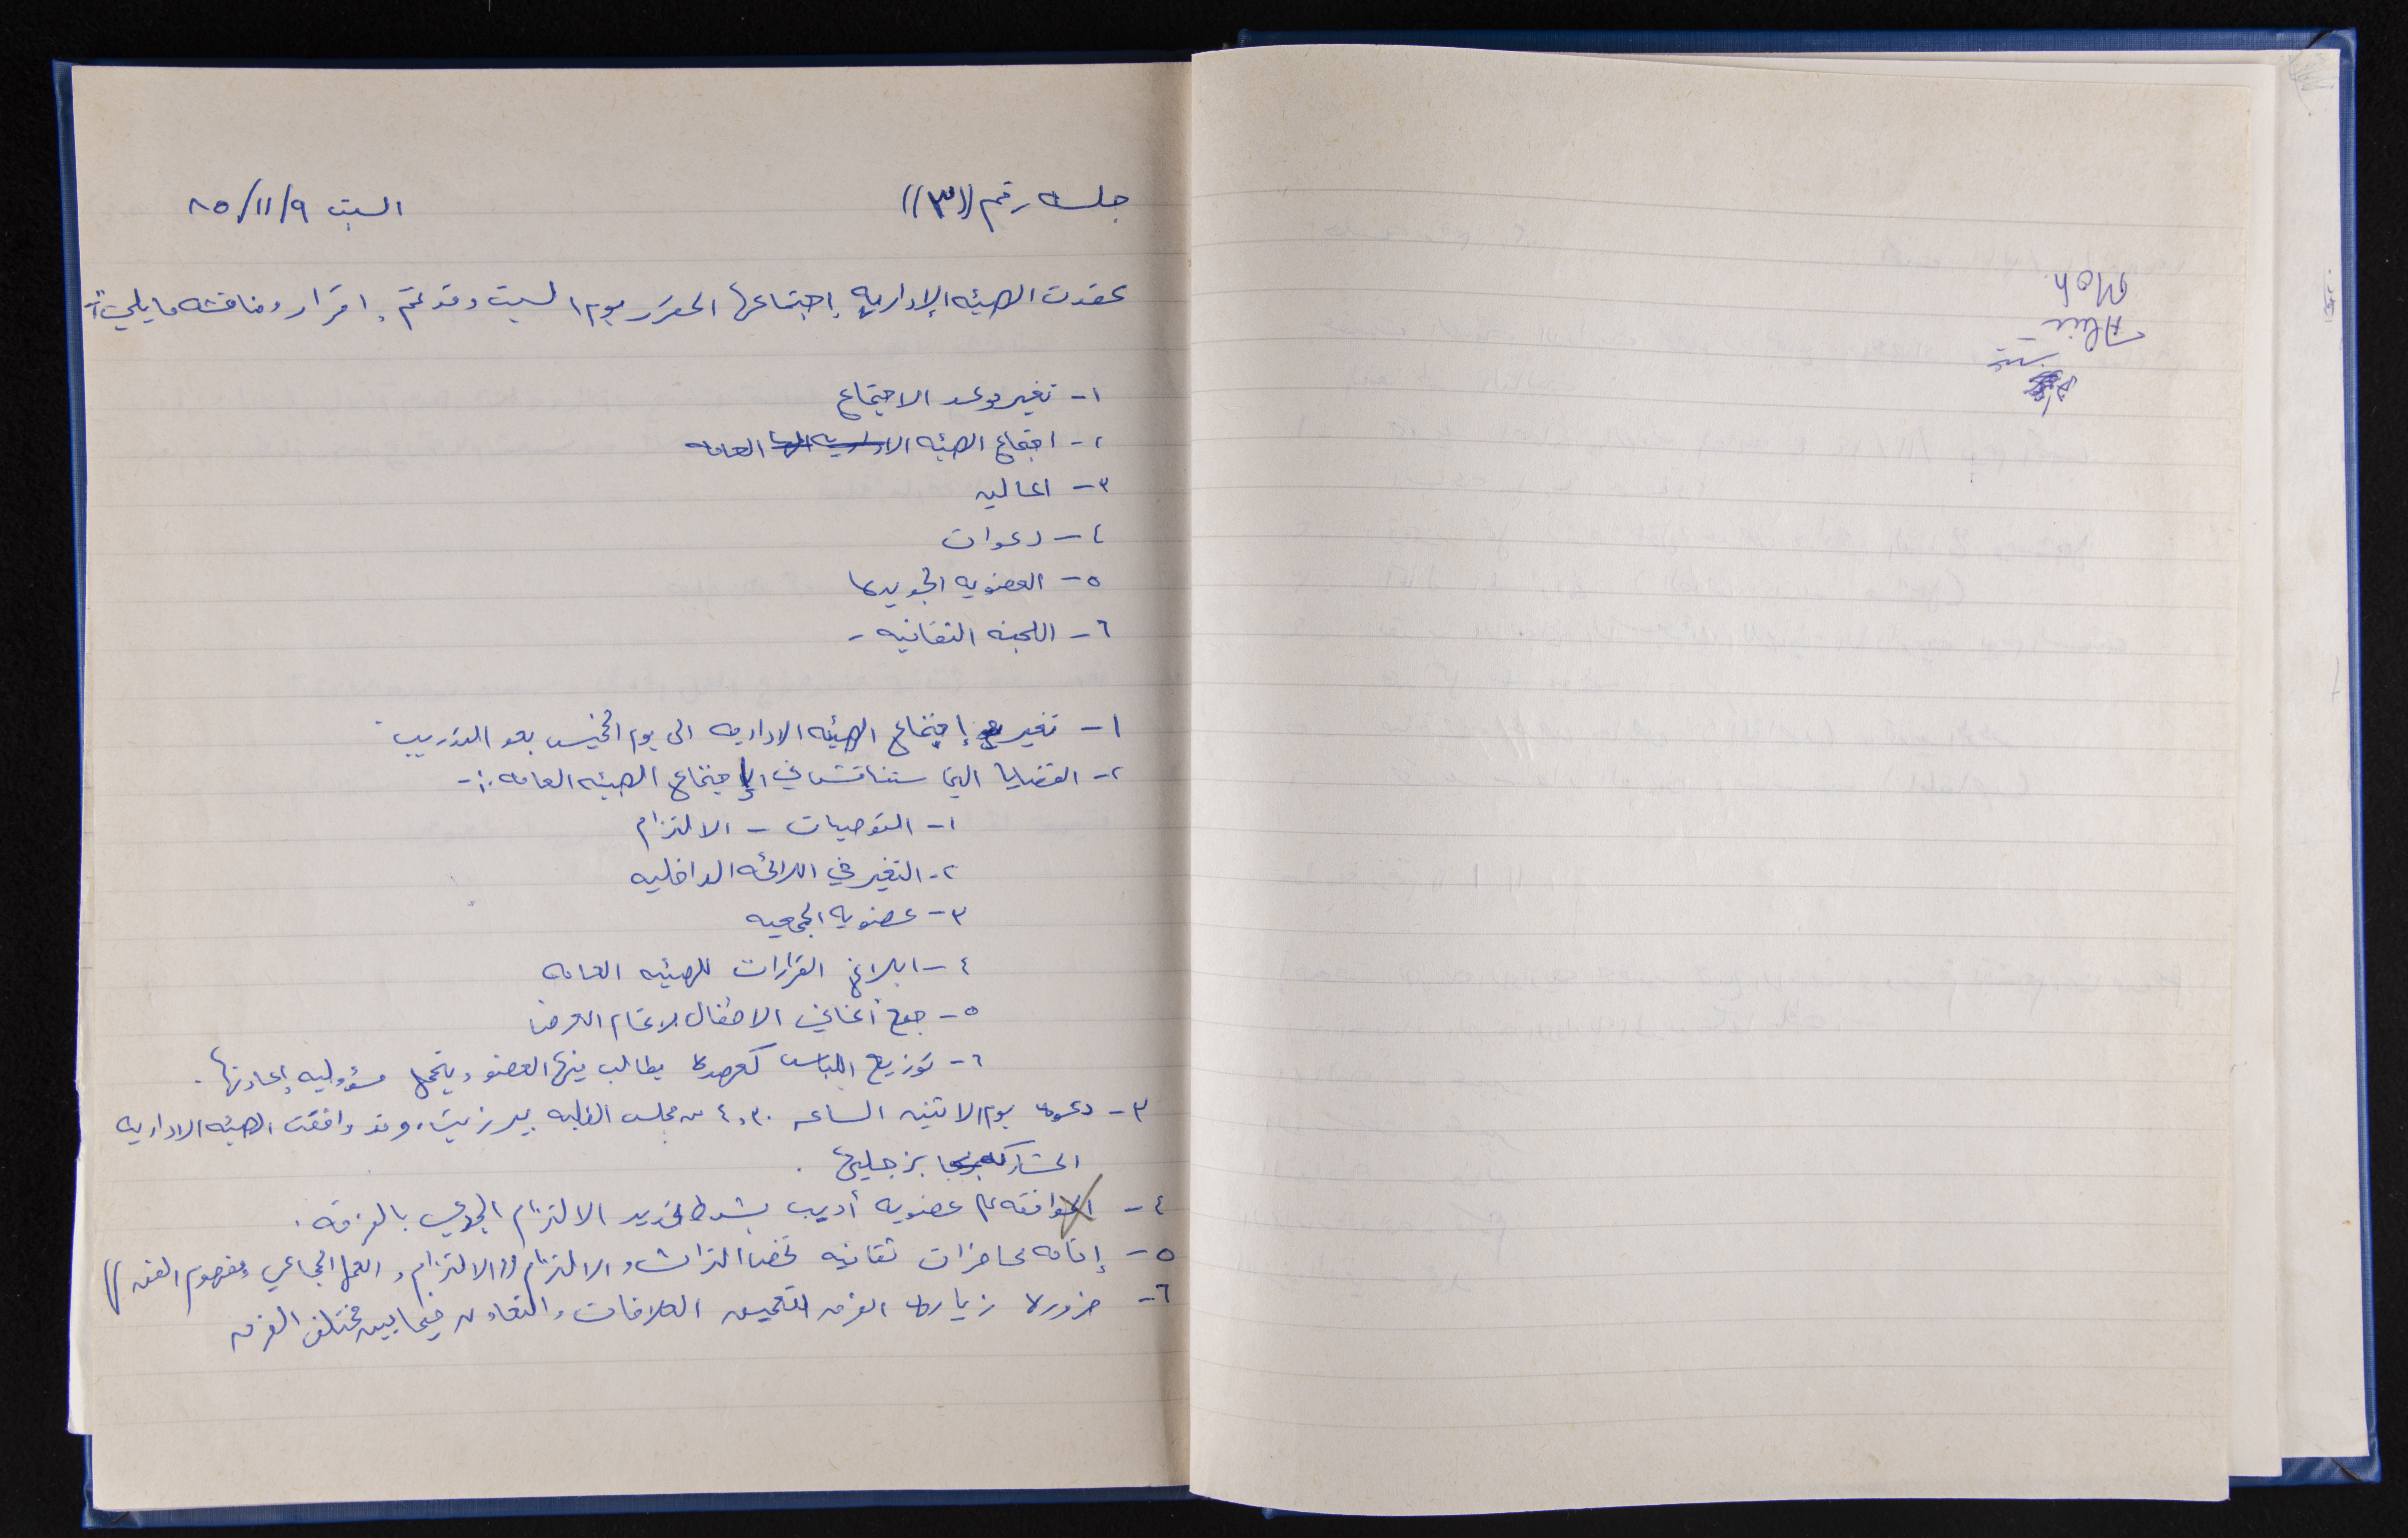 جلسه رقم ((٣))
السبت ٩/١١/٨٥
عقدت الهيئه الإداريه إجتماعها المقرر يوم السبت وقد تم إقرار ومناقشه ما يلي :-
١- تغير موعد الاجتماع
٢- اجتماع الهيئه الاداريه العامه
٣- الماليه
٤- دعوات
٥- العضويه الجديده
٦- اللجنه الثقافيه -
١- تغير إجتماع الهيئه الاداريه الى يوم الخميس بعد التدريب
٢- القضايا التي ستناقش في إجتماع الهيئه العامه :-
١- التوصيات - الالتزام
٢- التغير في اللائحه الداخليه
٣- عضويه الجمعيه
٤- ابلاغ القرارات للهيئه العامه
٥- جمع أغاني الاطفال لاتمام العرض
٦- توزيع اللباس كعهده يطالب فيها العضو ويتحمل مسؤوليه إعادتها .
٣- دعوه يوم الاثنين الساعه ٤,٣٠ من مجلس الطلبه بير زيت، وقد وافقت الهيئه الاداريه
المشاركه بزجليه .
٤- الموافقه على عضويه أديب بشرط تحديد الالتزام الجدي بالفرقه .
٥- إقامه محاضرات ثقافيه تخص التراث والالتزام ((الالتزام، العمل الجماعي ومفهوم الفن ))
٦- ضروره زياره الفرق لتعميق العلاقات والتعاون فيما بين مختلف الفرق
Moh.